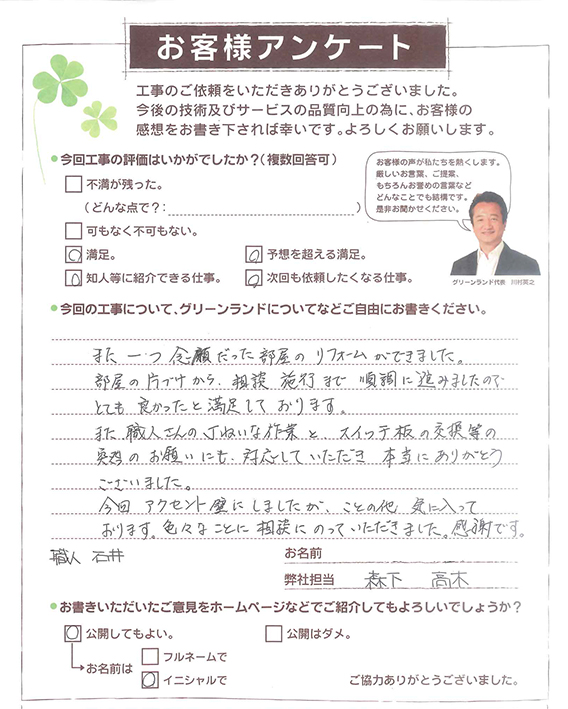 お客様アンケート
工事のご依頼をいただきありがとうございました。
今後の技術及びサービスの品質向上の為に、お客様の
感想をお書き下されば幸いです。よろしくお願いします。
今回工事の評価はいかがでしたか?(複数回答可)
不満が残った。
(どんな点で?: )
可もなく不可もない。
満足。
予想を超える満足。
知人等に紹介できる仕事。
次回も依頼したくなる仕事。
お客様の声が私たちを熱くします。
厳しいお言葉、ご提案、
もちろんお誉めの言葉など
どんなことでも結構です。
是非お聞かせください。
グリーンランド代表 川村英之
今回の工事について、グリーンランドについてなどご自由にお書きください。
また一つ念願だった部屋のリフォームができました。
部屋の片づけから、相談 施行まで 順調に進みましたので
とても良かったと満足しております。
また職人さんの丁ねいな作業と、スイッチ板の交換等の
お願いにも、対応していただき 本当にありがとう
ございました。
今回 アクセント壁にしましたが、ことの他 気に入って
おります。色々なことに相談にのっていただきました。感謝です。
職人 石井
お名前
弊社担当 森下 高木
お書きいただいたご意見をホームページなどでご紹介してもよろしいでしょうか?
公開してもよい。
公開はダメ。
お名前は
フルネームで
イニシャルで
ご協力ありがとうございました。